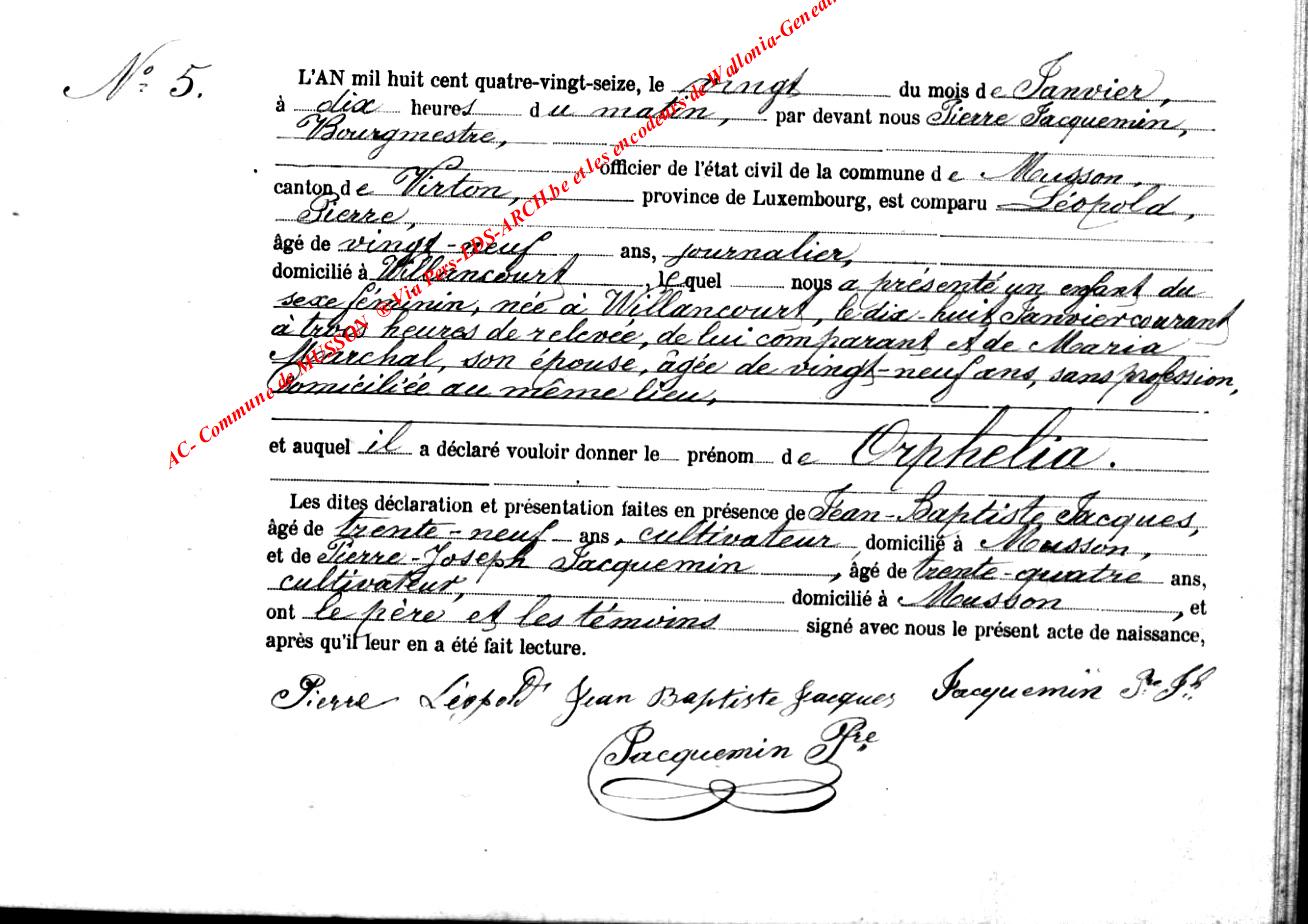 N° 5.
L'AN mil huit cent quatre-vingt-seize, le vingt du mois de Janvier,
à dix heures du matin, par devant nous Pierre Jacquemin,
Bourgmestre,
officier de l'état civil de la commune de Musson,
canton de Virton, province de Luxembourg, est comparu Léopold,
Pierre,
âgé de vingt-neuf ans, journalier,
domicilié à Willancourt, lequel nous a présenté un enfant du
sexe féminin, née à Willancourt, le dix-huit Janvier courant
à trois heures de relevée, de lui comparant et de Maria
Marchal, son épouse, âgée de vingt-neuf ans, sans profession,
domiciliée au même lieu,
et auquel il a déclaré vouloir donner le prénom de Orphelia.
Les dites déclaration et présentation faites en présence de Jean-Baptiste Jacques,
âgé de trente-neuf ans, cultivateur, domicilié à Musson,
et de Pierre-Joseph Jacquemin, âgé de trente-quatre ans,
cultivateur, domicilié à Musson, et
ont le père et les témoins signé avec nous le présent acte de naissance,
après qu'il leur en a été fait lecture.
Pierre Léopold Jean Baptiste Jacques Jacquemin Pre Jh
Jacquemin Pre
AC- Commune de MUSSON ®Via Pers-EDS-ARCH.be et les encodeurs de Wallonia-Geneal